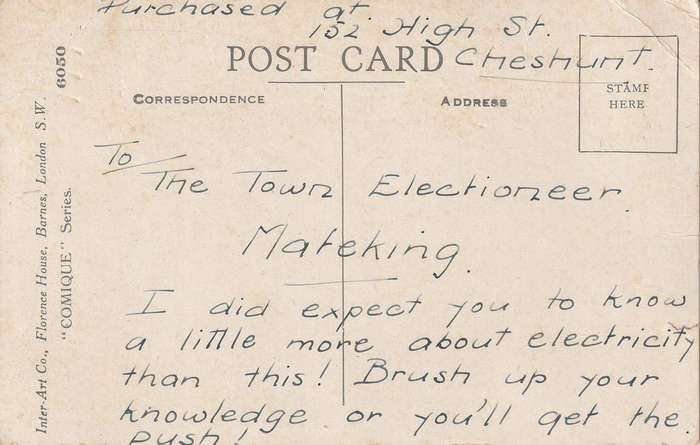 Purchased at
152 High St.
Cheshunt.
POST CARD
CORRESPONDENCE
ADDRESS
STAMP
HERE
To
The Town Electioneer.
Mateking.
I did expect you to know
a little more about electricity
than this! Brush up your
knowledge or you'll get the
push!
Inter-Art Co., Florence House, Barnes, London S.W.
"COMIQUE" Series.
6050